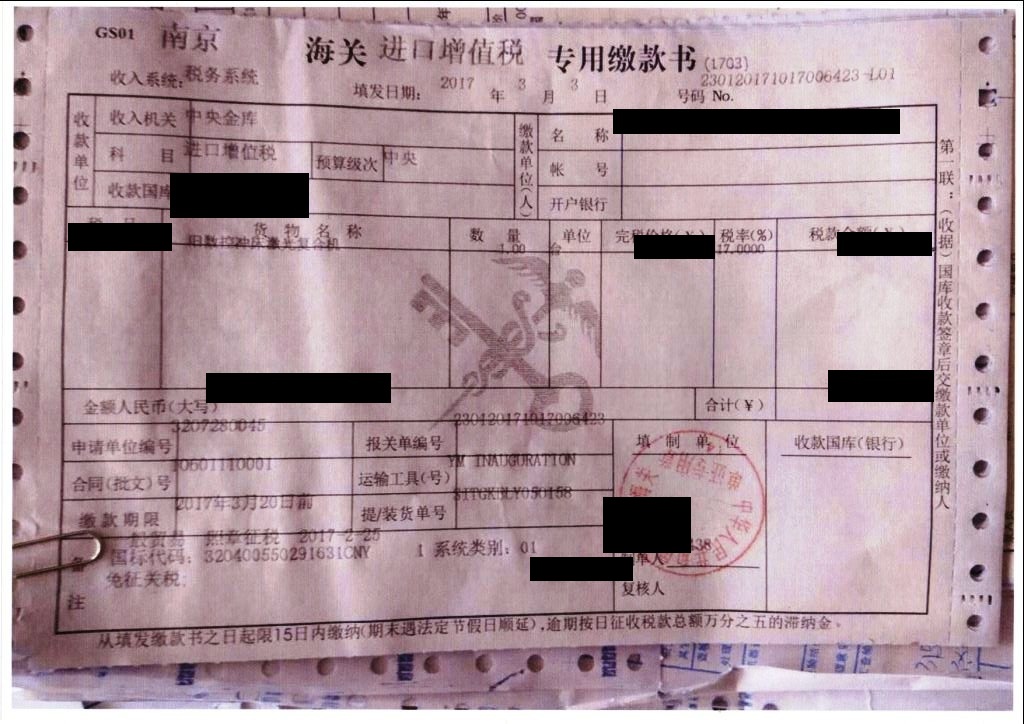 GS01 南京 海关 进口增值税 专用缴款书 (1703)
收入系统: 税务系统 填发日期: 2017 年 3 月 3 日 号码 No. 230120171017006423-L01
收款单位 收入机关 中央金库 缴款单位(人) 名 称
科 目 进口增值税 预算级次 中央 帐 号
收款国库 开户银行
税 号 货 物 名 称 数 量 单位 完税价格(¥) 税率(%) 税款金额(¥)
1.00 台 17.0000
金额人民币(大写) 合计(¥)
申请单位编号 3207280045 报关单编号 230120171017006423 填 制 单 位 收款国库(银行)
合同(批文)号 10601110001 运输工具(号) YM INAUGURATION
缴款期限 2017年3月20日前 提/装货单号 SITGKBLY050158
备注 一般贸易 照章征税 2017-2-25
国标代码: 320400550291631CNY 1 系统类别: 01
制单人 38
免征关税:
复核人
从填发缴款书之日起限15日内缴纳(期末遇法定节假日顺延),逾期按日征收税款总额万分之五的滞纳金。
第一联:(收据)国库收款签章后交缴款单位或缴纳人